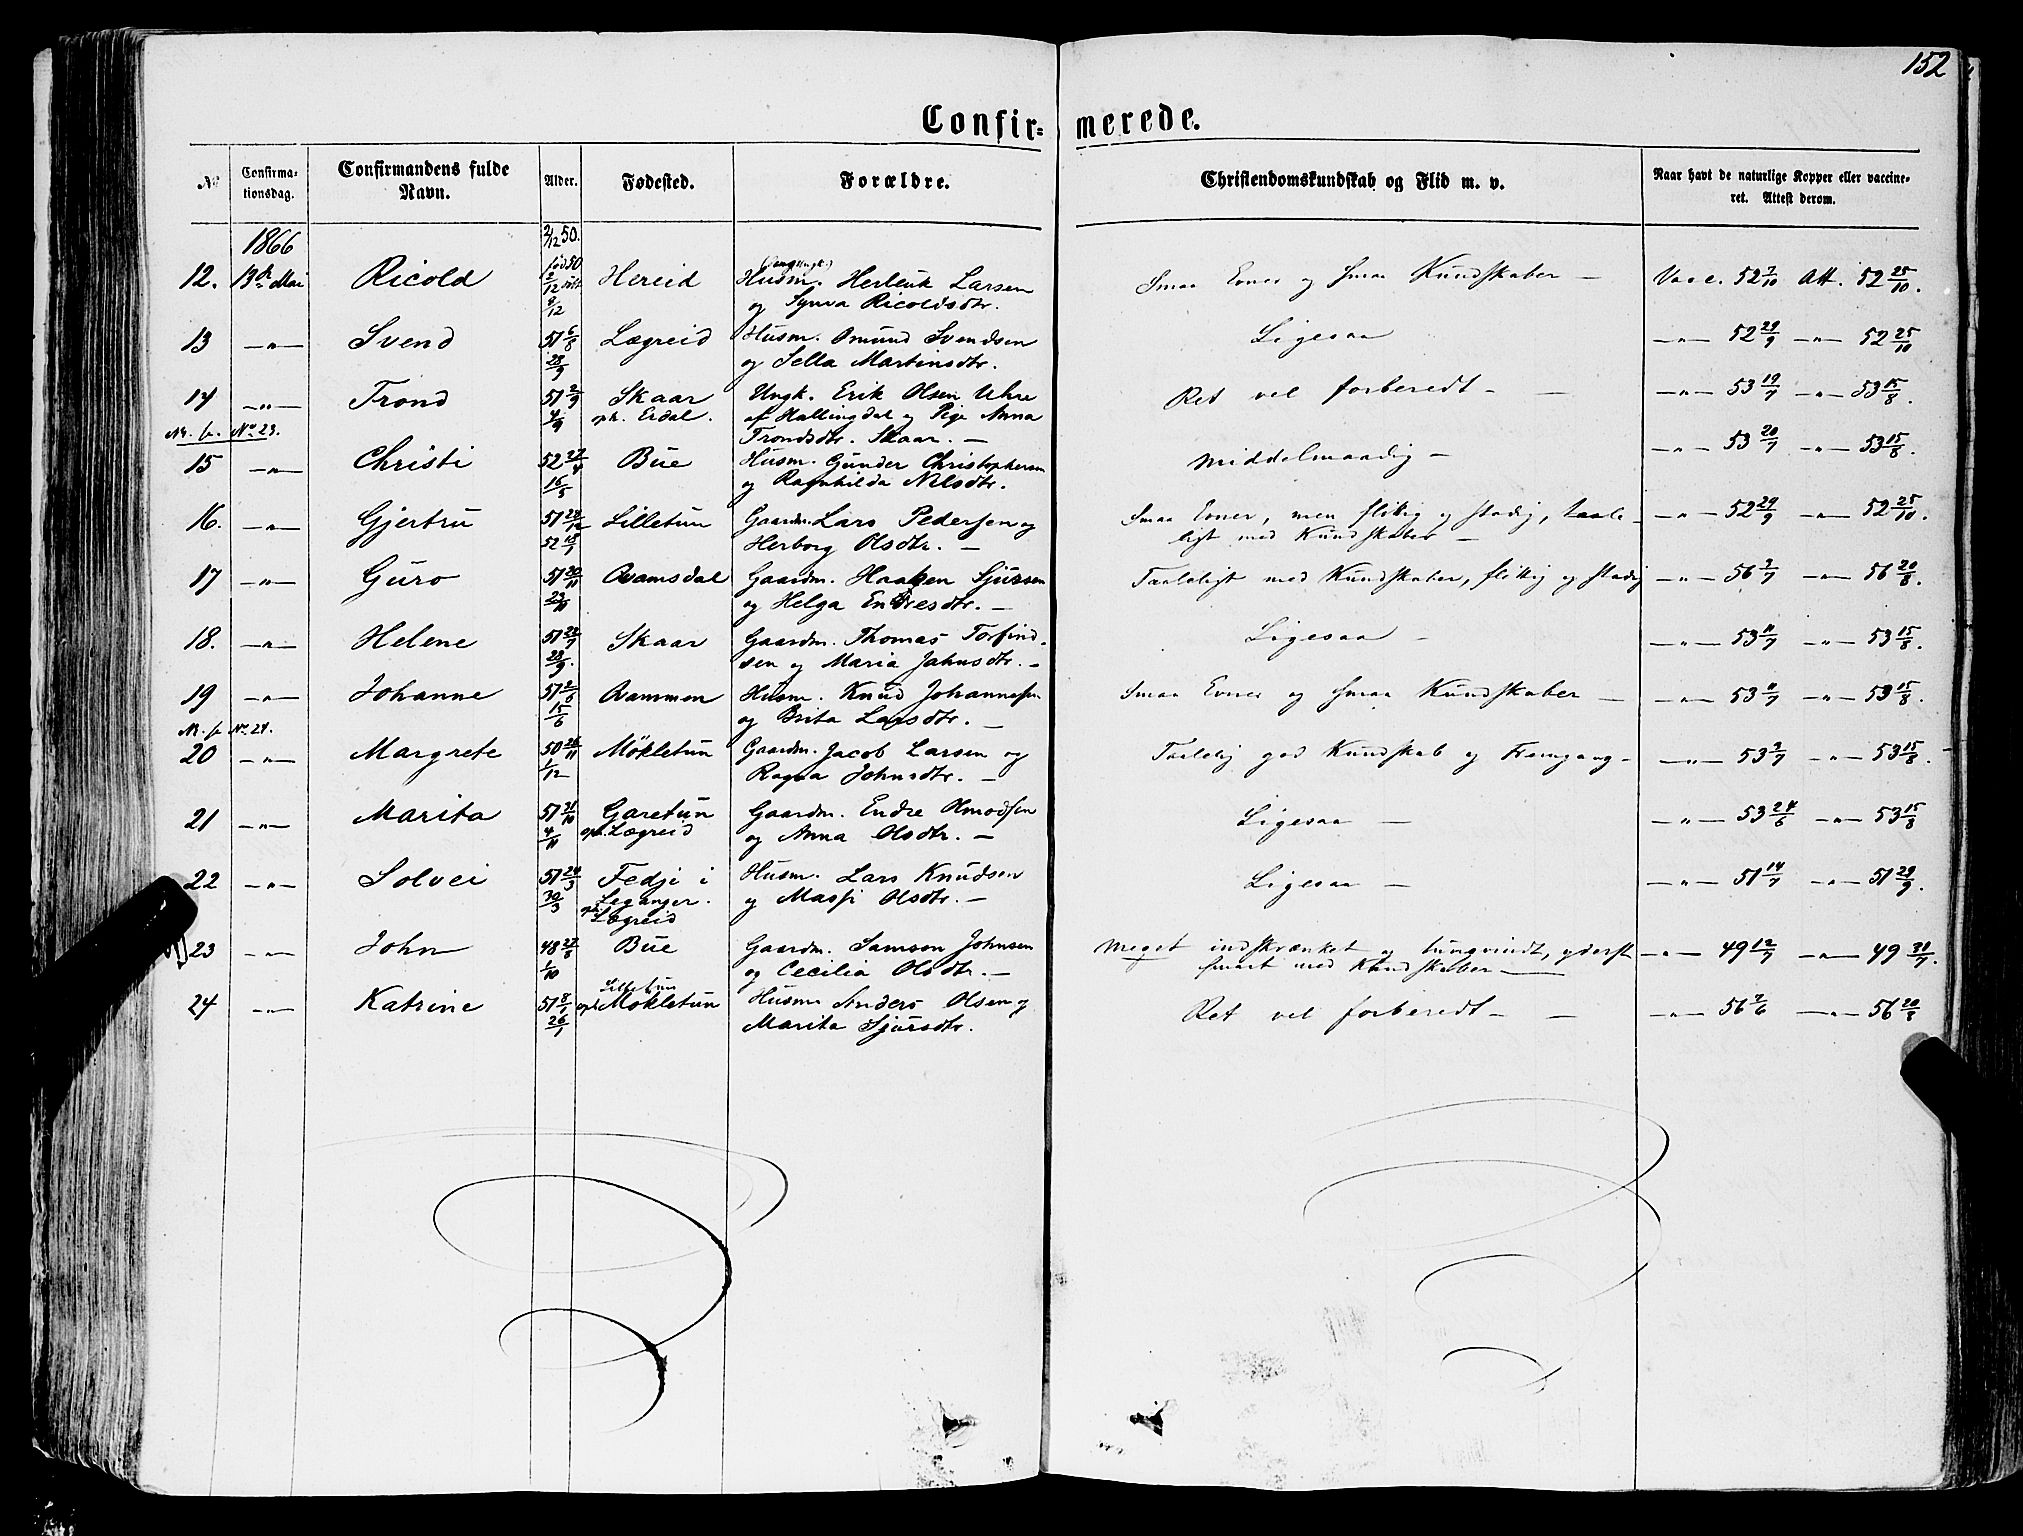 152
Confir= merede.
No Confirma-tionsdag. Confirmandens fulde Navn. Alder. Fødested. Forældre. Christendomskundskab og Flid m. v. Naar havt de naturlige Kopper eller vaccine-ret. Attest derom.
1866 2/12 50.
12. 13de Mai Ricold Hereid Husm. Herleik Larsen Smaa Evner og smaa Kundskaber — Vacc. 52 7/10 Att. 52 25/10.
8/12 og Synva Ricoldsdtr.
13 —"— Svend 51 6/8 Lægreid Husm. Omund Svendsen Ligesaa —"— 52 29/9 —"— 52 25/10
28/9 og Sella Martinsdtr.
14 —"— Trond 51 2/9 Skaar Ungk. Erik Olsen Uhre Ret vel forberedt — — —"— 53 19/7 —"— 53 15/8.
4/9 oph. Erdal. af Hallingdal og Pige Anna
N. b. No 23. Trondsdtr. Skaar. —
15 —"— Christi 52 27/4 Bue Husm. Gunder Christophersen Middelmaadig — —"— 53 20/7 —"— 53 15/8.
16/5 og Ragnhilda Nilsdtr.
16. —"— Gjertru 51 28/12 Lilletun Gaardm. Lars Pedersen og Smaa Evner, men flitig og stadig, taale- —"— 52 29/9 —"— 52 25/10.
52 18/1 Herborg Olsdtr. — ligt med Kundskaber —
17 —"— Guro 51 20/11 Qvamsdal Gaardm. Haaken Sjursen Taaleligt med Kundskaber, flittig og stadig —"— 56 2/7 —"— 56 20/8.
23/11 og Helga Endresdtr. —
18. —"— Helene 51 22/7 Skaar Gaardm. Thomas Torfind- Ligesaa — —"— 53 11/7 —"— 53 15/8.
28/9. sen og Maria Jahnsdtr. —
19 —"— Johanne 51 2/6 Qvammen Husm. Knud Johannesen Smaa Evner og smaa Kundskaber — —"— 53 11/7 —"— 53 15/8.
15/6 og Brita Larsdtr. —
N. b. No 24.
20 —"— Margrete 50 26/11 Mökletun Gaardm. Jacob Larsen og Taalelig god Kundskab og Fremgang — —"— 53 3/7 —"— 53 15/8.
1/12 Ragna Johnsdtr. —
21 —"— Marita 51 21/10 Garetun Gaardm. Endre Omodsen Ligesaa — —"— 53 24/6 —"— 53 15/8
4/11 oph. Lægreid og Anna Olsdtr. —
22 —"— Solvei 51 24/3 Fedje i Husm. Lars Knudsen Ligesaa — —"— 51 14/7 —"— 51 29/9.
30/3 Leganger. og Massi Olsdtr. —
oph. Lægreid
23 —"— John 48 27/8 Bue Gaardm. Samson Johnsen Meget indskrænket og tungvindt, yderst —"— 49 12/7 —"— 49 31/7.
1/10 og Cecilia Olsdtr. — smaat med Kundskaber —
Lilletun
24 —"— Katrine 51 8/1 oph. Mökletun Husm. Anders Olsen og Ret vel forberedt — — —"— 56 2/6 —"— 56 20/8
26/1 Marita Sjursdtr.